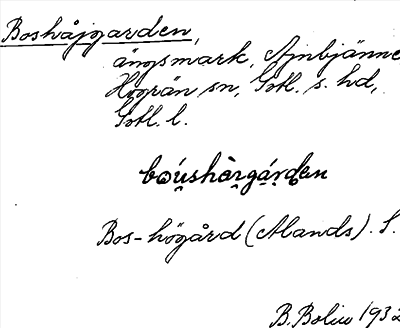 Boshåjgarden,
ängsmark, Ajnbjänne
Hogrän sn, Gotl. s. hd,
Gotl. l.
boúshòrgárden
Bos-högård (Alands). S.
B. Bolin 1932